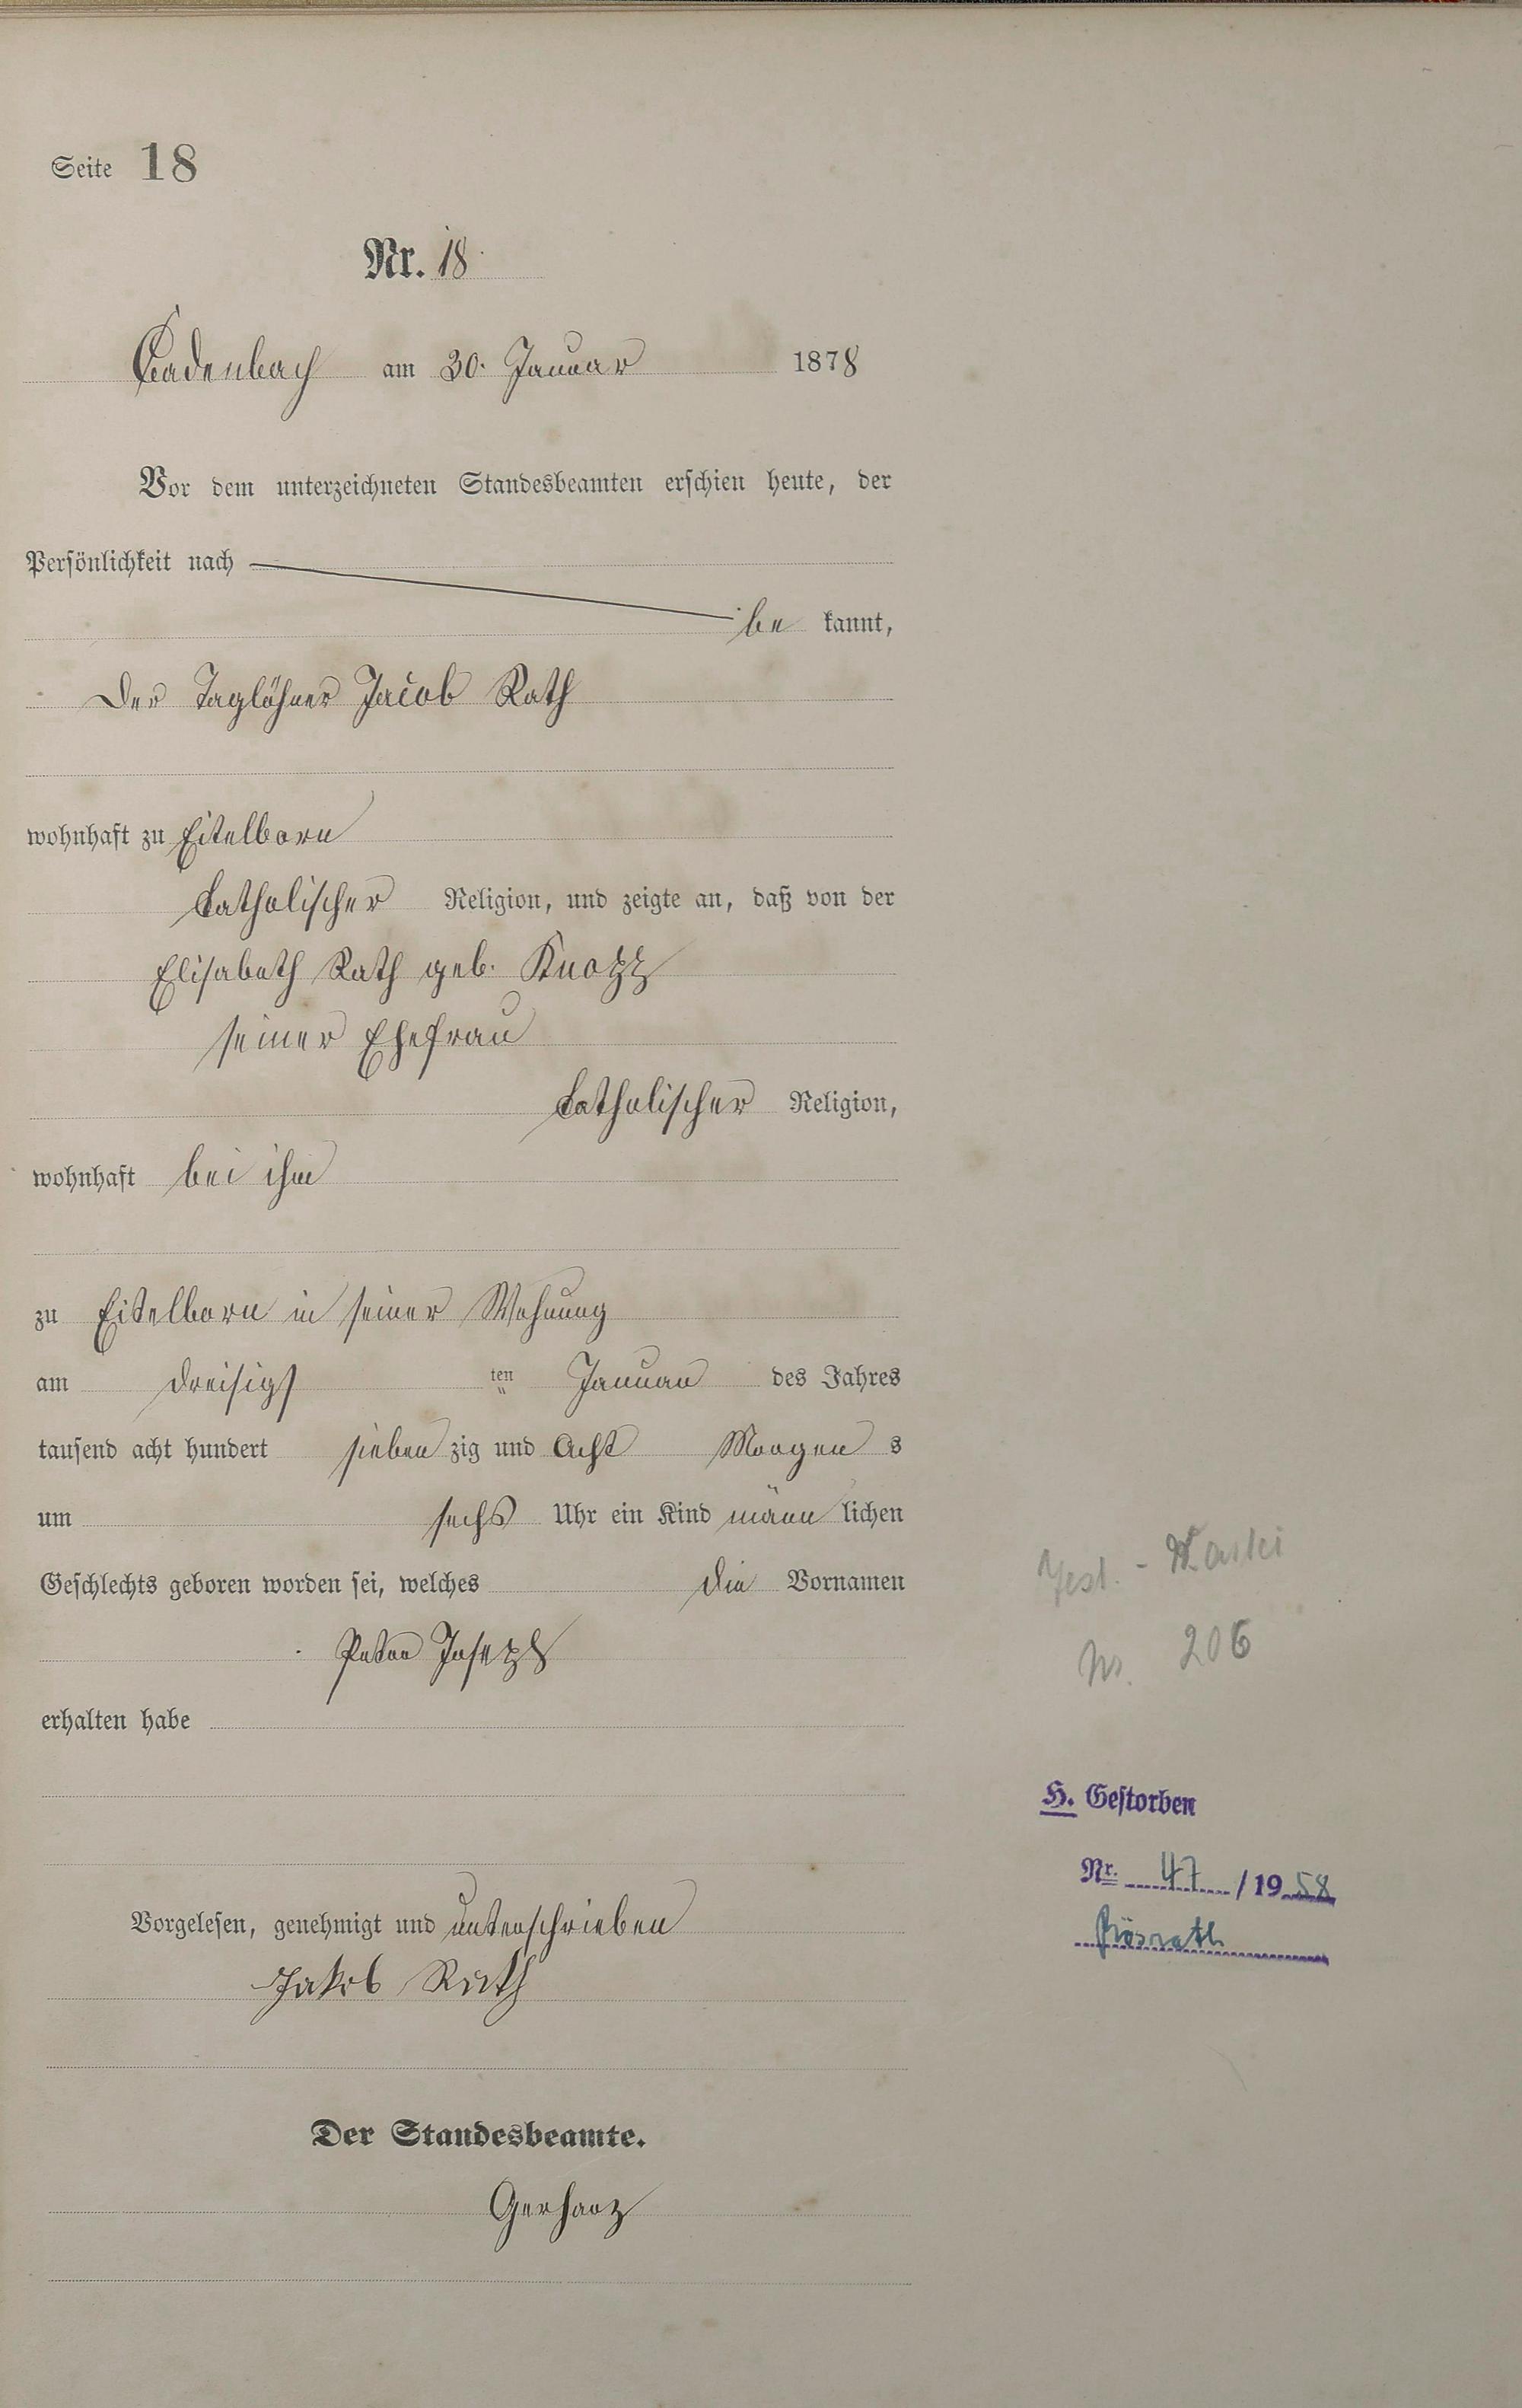 Seite 18
Nr. 18
Cadenbach am 30. Januar 1878
Vor dem unterzeichneten Standesbeamten erschien heute, der
Persönlichkeit nach
be kannt,
der Taglöhner Jacob Rath
wohnhaft zu Eitelborn
katholischer Religion, und zeigte an, daß von der
Elisabeth Rath geb. Knopp
seiner Ehefrau
katholischer Religion,
wohnhaft bei ihm
zu Eitelborn in seiner Wohnung
am dreisigs ten Januar des Jahres
tausend acht hundert sieben zig und Acht Morgen s
um sechs Uhr ein Kind männ lichen
Geschlechts geboren worden sei, welches die Vornamen
Peter Joseph
erhalten habe
Vorgelesen, genehmigt und unterschrieben
Jakob Rath
Der Standesbeamte.
Gerharz
Nr. 206
H. Gestorben
Nr. 47 / 19 58
Rösrath